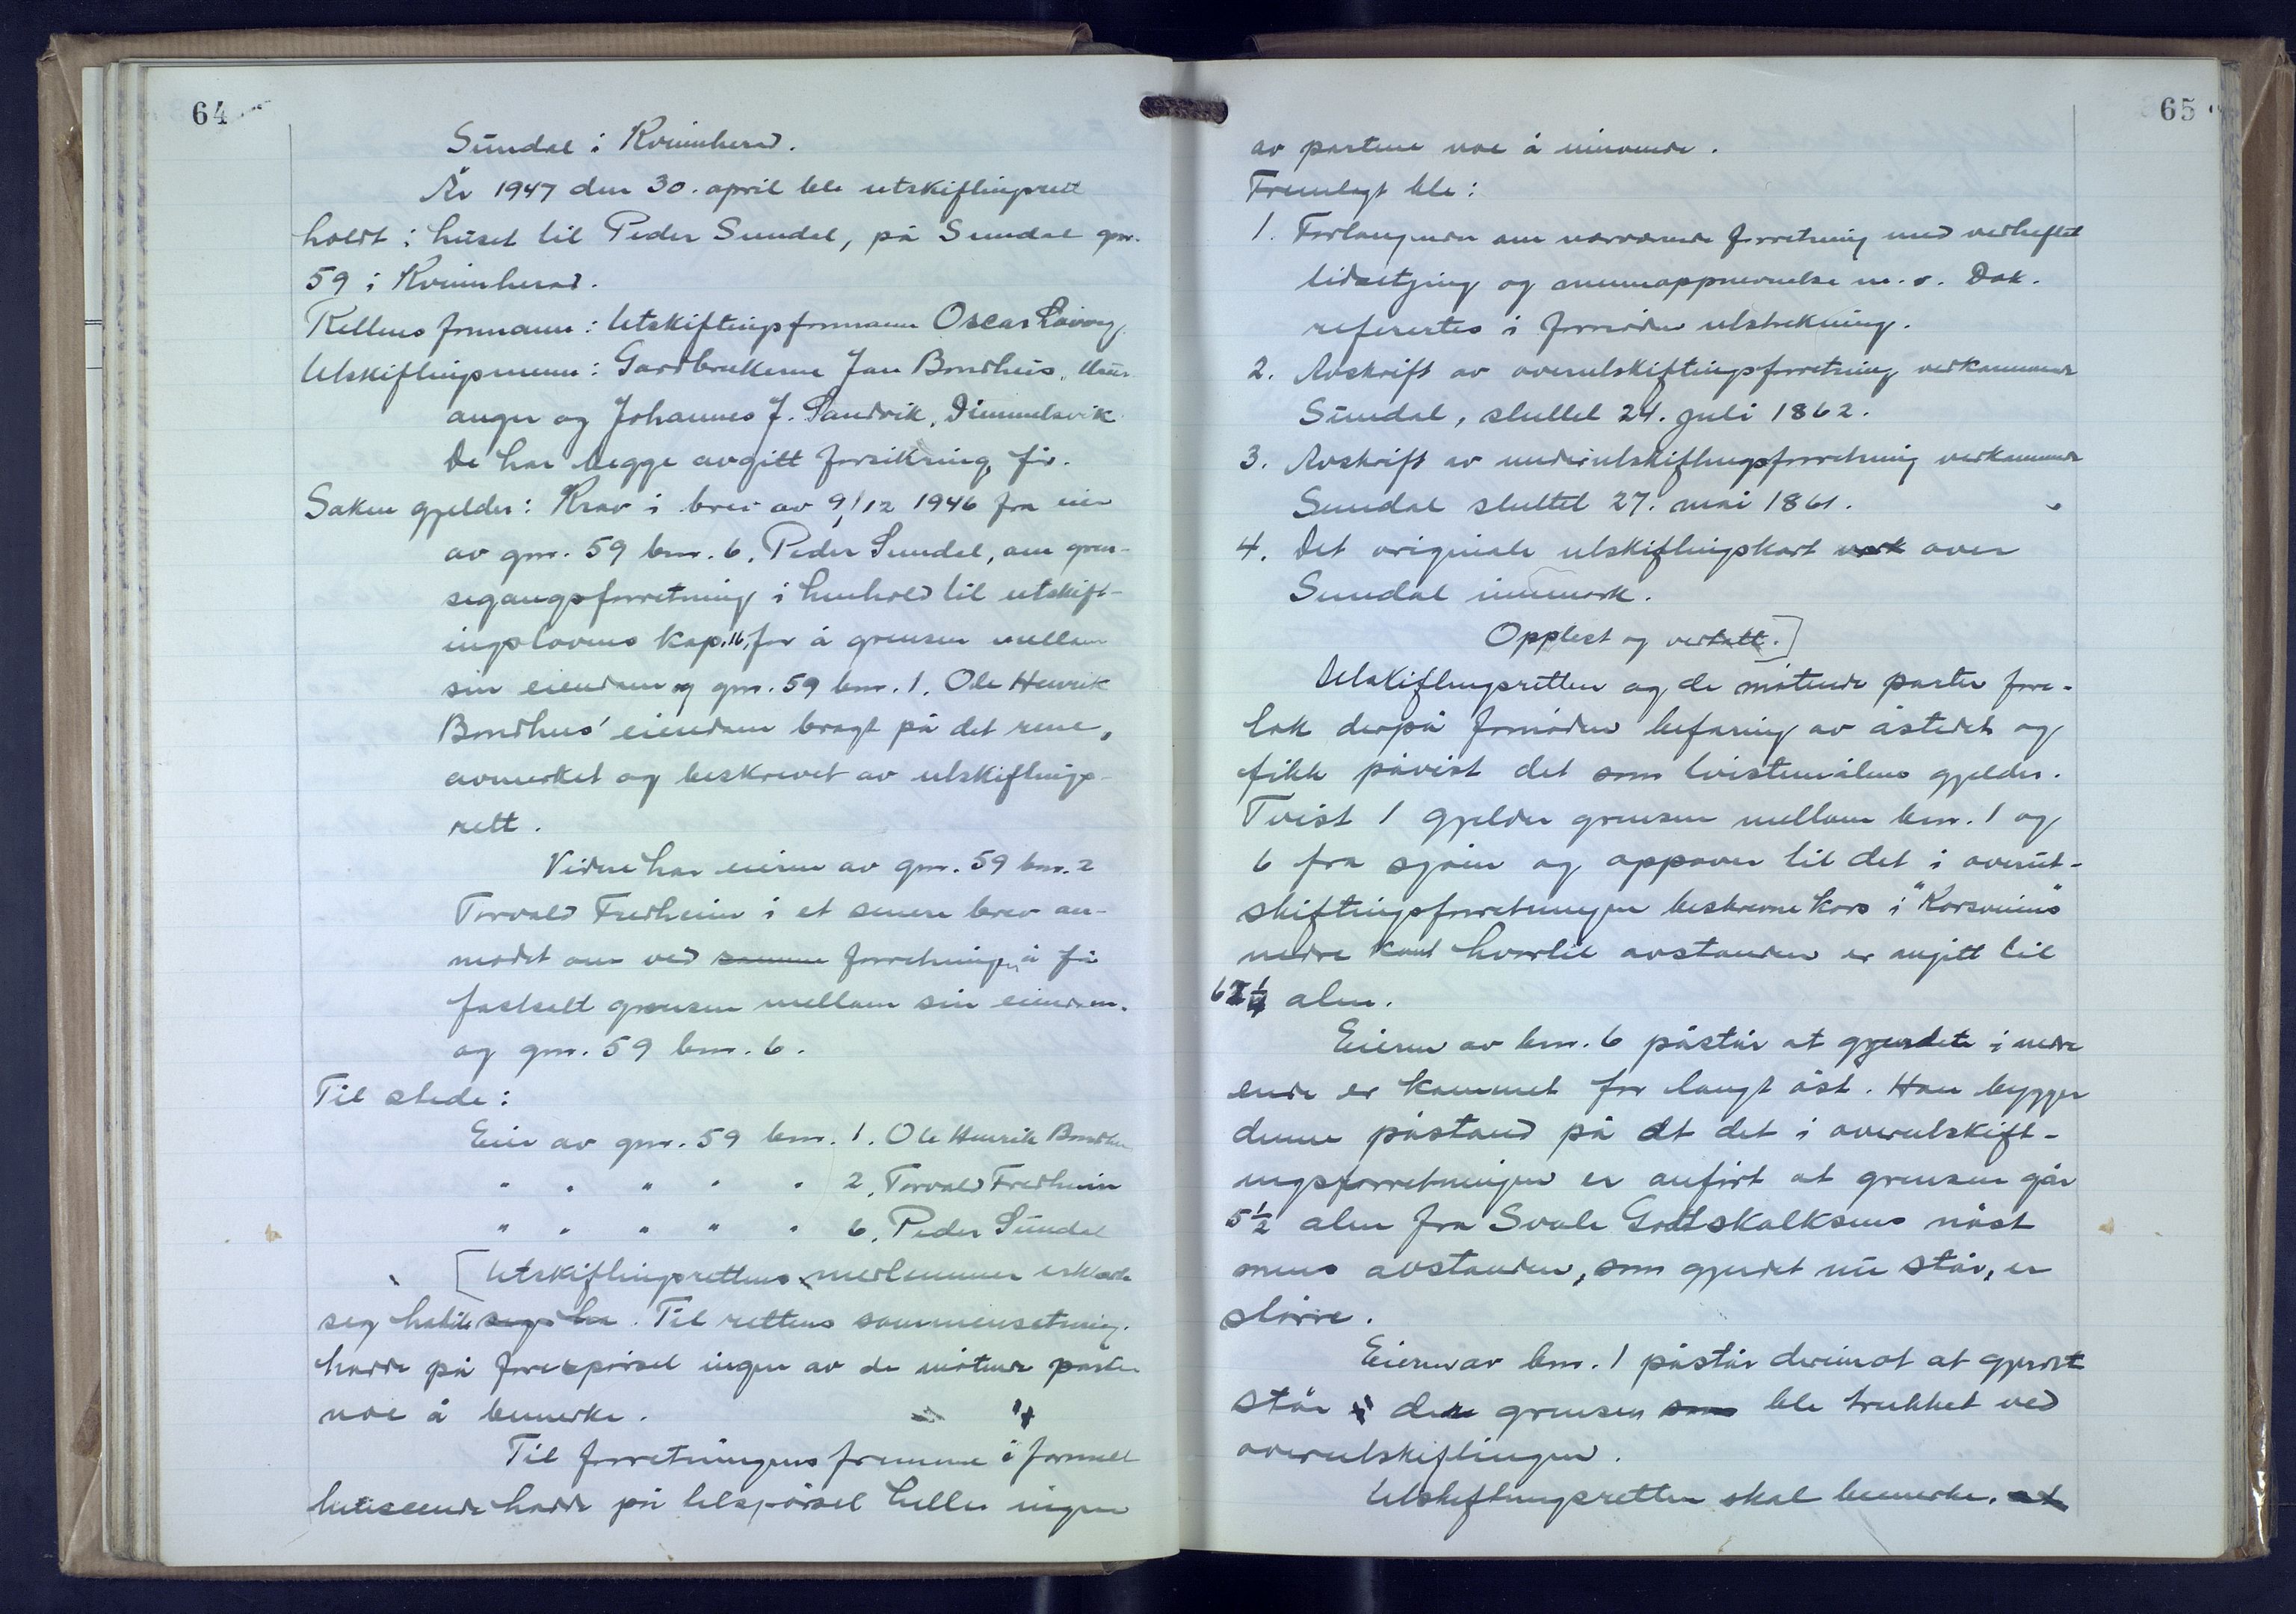 64
Sundal i Kvinnherad.
År 1947 den 30. april ble utskiftingsrett
holdt i huset til Peder Sundal, på Sundal gnr.
59 i Kvinnherad.
Rettens formann: Utskiftingsformann Oscar
Utskiftingsmenn: Gardbrukerne Jan Bondhus, Maur-
anger og Johannes J. Sandvik, Dimmelsvik.
De har begge avgitt forsikring før.
Saken gjelder: Krav i brev av 9/12 1946 fra eier
av gnr. 59 bnr. 6, Peder Sundal, om gren-
segangsforretning i henhold til utskift-
ingslovens kap. 16, for å grensen mellom
sin eiendom og gnr. 59 bnr. 1, Ole Henrik
Bondhus' eiendom bragt på det rene,
avmerket og beskrevet av utskiftings-
rett.
Videre har eieren av gnr. 59 bnr. 2
Torvald Fredheim i et senere brev an-
modet om ved samme forretningen å få
fastsett grensen mellom sin eiendom
og gnr. 59 bnr. 6.
Til stede:
Eier av gnr. 59 bnr. 1. Ole Henrik Bondhus
" " " " " 2. Torvald Fredheim
" " " " " 6. Peder Sundal
[Utskiftingsrettens medlemmer erklærte
seg habile. Til rettens sammensetning
hadde på forespørsel ingen av de møtende parter
noe å bemerke.
Til forretningens fremme i formell
henseende hadde på tilspørsel heller ingen
65
av partene noe å innvende.
Fremlagt ble:
1. Forlangende om nærværende forretning med vedheftet
tidsetjing og mennoppnevnelse m. v. Dok.
refereres i fornøden utstrekning.
2. Avskrift av overutskiftingsforretning vedkommende
Sundal, sluttet 24. juli 1862.
3. Avskrift av underutskiftingsforretning vedkommende
Sundal sluttet 27. mai 1861.
4. Det originale utskiftingskart over
Sundal innmark.
Opplest og vedtatt.]
Utskiftingsretten og de møtende parter fore-
tok derpå fornøden befaring av åstedet og
fikk påvist det som tvistemålene gjelder.
Tvist 1 gjelder grensen mellom bnr. 1 og
6 fra sjøen og oppover til det i overut-
skiftingsforretningen beskrevne kors i "Korsveiens"
nedre kant hvortil avstanden er angitt til
alen.
Eieren av bnr. 6 påstår at gjerdet i nedre
ende er kommet for langt øst. Han bygger
denne påstand på at det i overutskift-
ingsforretningen er anført at grensen går
5½ alen fra Svale Gottskalksens nøst
mens avstanden, som gjerdet nu står, er
større.
Eieren av bnr. 1 påstår derimot at gjerdet
står i den grensen som ble trukket ved
overutskiftingen.
Utskiftingsretten skal bemerke, at